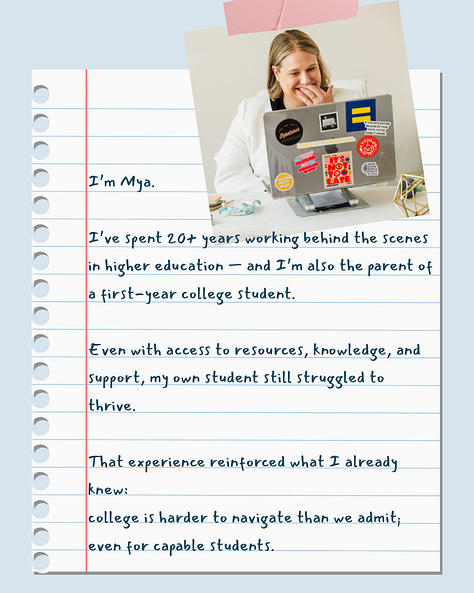 IT'S
NOT
TOO
LATE
I'm Mya.
I've spent 20+ years working behind the scenes
in higher education — and I'm also the parent of
a first-year college student.
Even with access to resources, knowledge, and
support, my own student still struggled to
thrive.
That experience reinforced what I already
knew:
college is harder to navigate than we admit;
even for capable students.